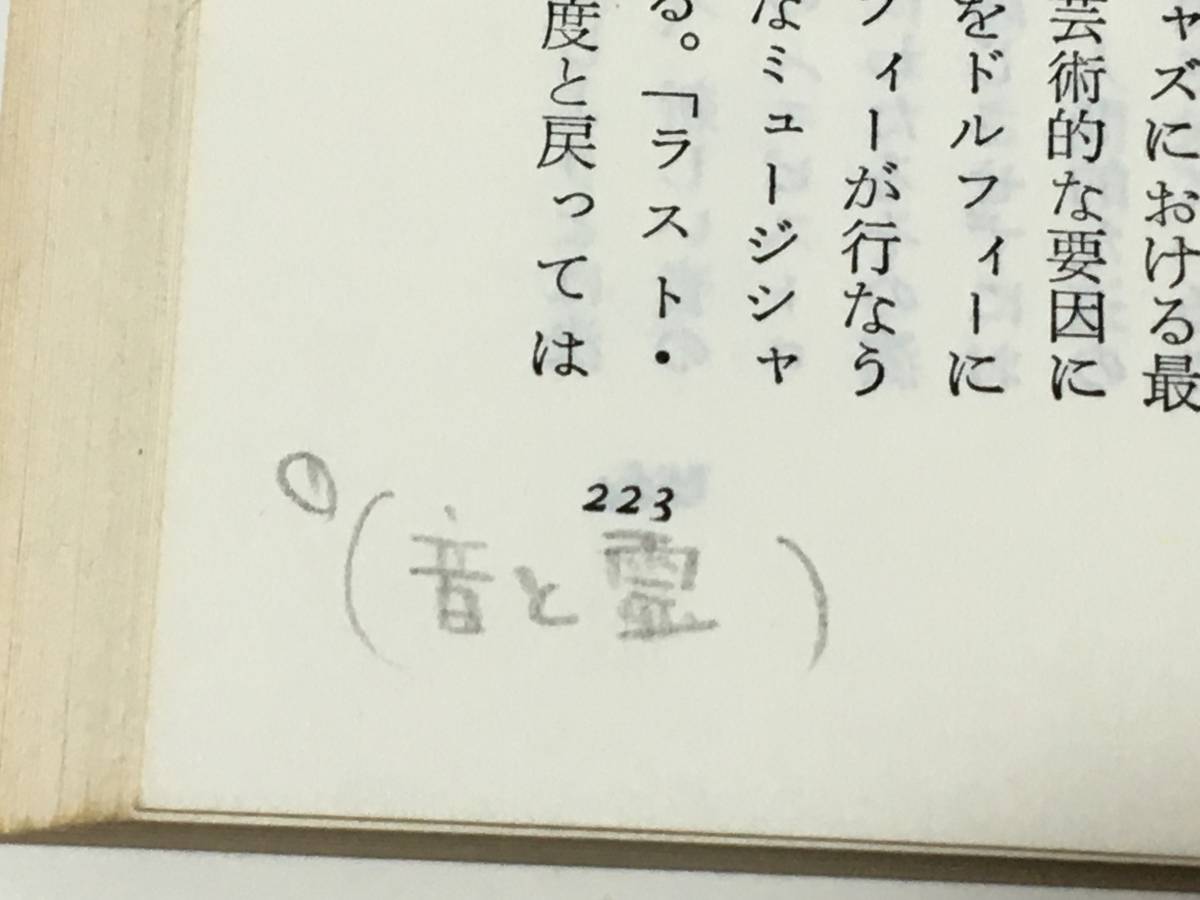 ャズにおける最
芸術的な要因に
をドルフィーに
フィーが行なう
なミュージシャ
る。「ラスト・
度と戻っては
223
(音と霊)